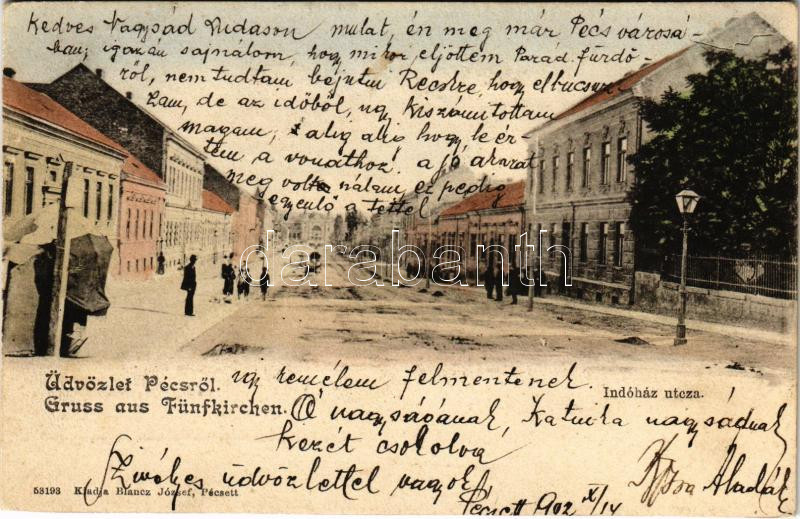 Kedves Nagysád Dudason mulat, én meg már Pécs városá-
ban; igazán sajnálom, hogy mikor eljöttem Parád fürdő-
ről, nem tudtam bejutni Recskre, hogy elbucsuz-
zam, de az időből, ugy kiszámitottam
magam, s alig alig hogy leér-
tem a vonathoz. a jó akarat
meg volt nálam, ez pedig
egyenlő a tettel
darabanth
Üdvözlet Pécsről.
Gruss aus Fünfkirchen.
ugy remélem felmentenek.
Indóház utcza.
Ő nagyságának, Katinka nagysádnak
kezét csokolva
Szivélyes üdvözlettel vagyok
Pécsett 902 X/14
Aladár
53193 Kiadja Blancz József, Pécsett